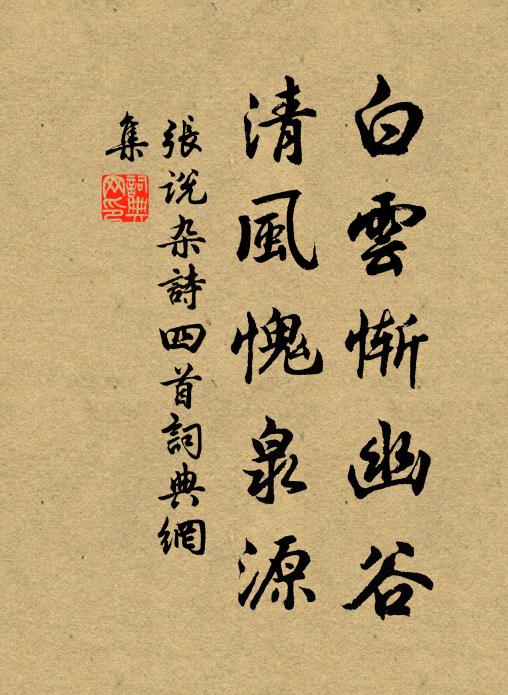 白雲慚幽谷
清風愧泉源
張说杂詩四首詞典網
集
詞典网印